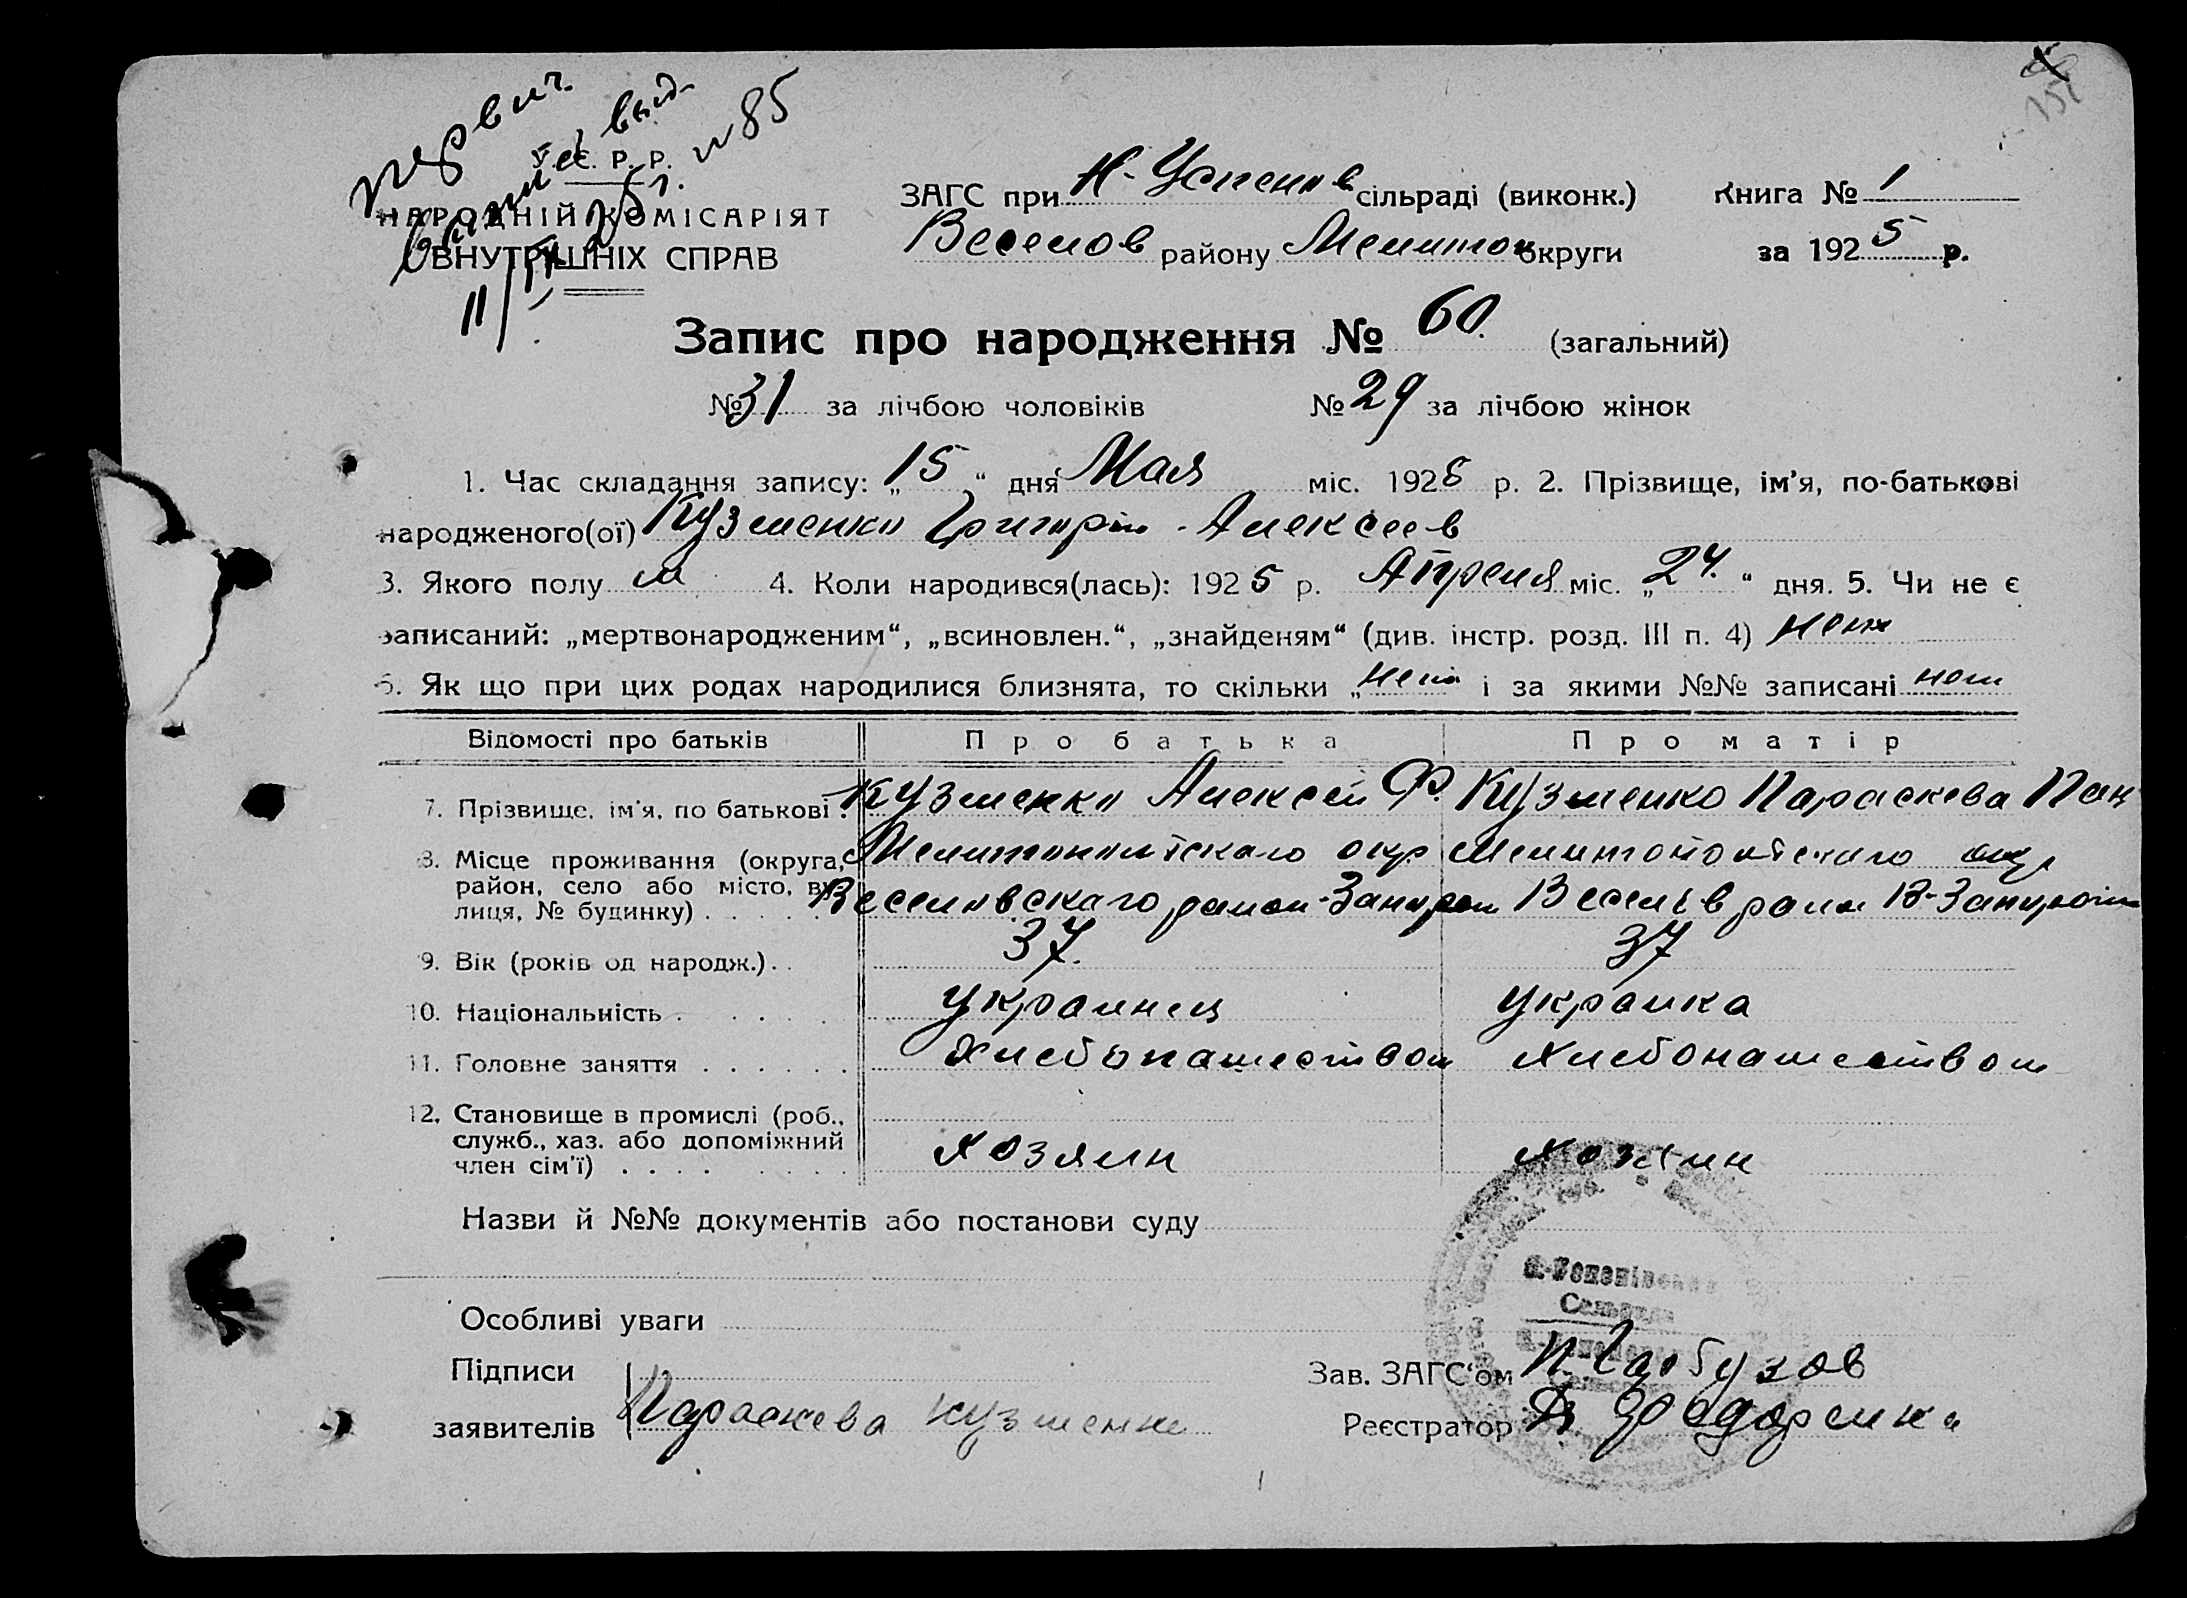 первич.
выпись выд.
11/IV 25 г. №85
У. С. Р. Р.
НАРОДНІЙ КОМІСАРІЯТ
ВНУТРІШНІХ СПРАВ
ЗАГС при Н-Успенов сільраді (виконк.) Книга № 1
Веселов району Мелитоп округи за 1925 р.
Запис про народження № 60. (загальний)
№ 31 за лічбою чоловіків № 29 за лічбою жінок
1. Час складання запису: „15“ дня Мая міс. 1925 р. 2. Прізвище, ім'я, по-батькові
народженого(ої) Кузменко Григорій Алексеев
3. Якого полу м 4. Коли народився(лась): 1925 р. Апреля міс. „24.“ дня. 5. Чи не є
записаний: „мертвонародженим“, „всиновлен.“, „знайденям“ (див. інстр. розд. III п. 4) нет
6. Як що при цих родах народилися близнята, то скільки „нет і за якими №№ записані нет
Відомості про батьків Про батька Про матір
7. Прізвище, ім'я, по батькові . Кузменко Алексей Ф. Кузменко Параскева Пан
8. Місце проживання (округа, Мелитопольскаго окр Мелитопольскаго окр
район, село або місто, ву- Веселовскаго район Веселов район
лиця, № будинку) . . . . .
9. Вік (років од народж.) . . 37. 37
10. Національність . . . . . украинец украинка
11. Головне заняття . . . . . . Хлебопашеством Хлебопашеством
12. Становище в промислі (роб.,
служб., хаз. або допоміжний хозяин хозяин
член сім'ї) . . . . . . .
Назви й №№ документів або постанови суду
Особливі уваги
Підписи
заявителів Параскева Кузменко
Зав. ЗАГС'ом П. Гарбузов
Реєстратор Федоренко